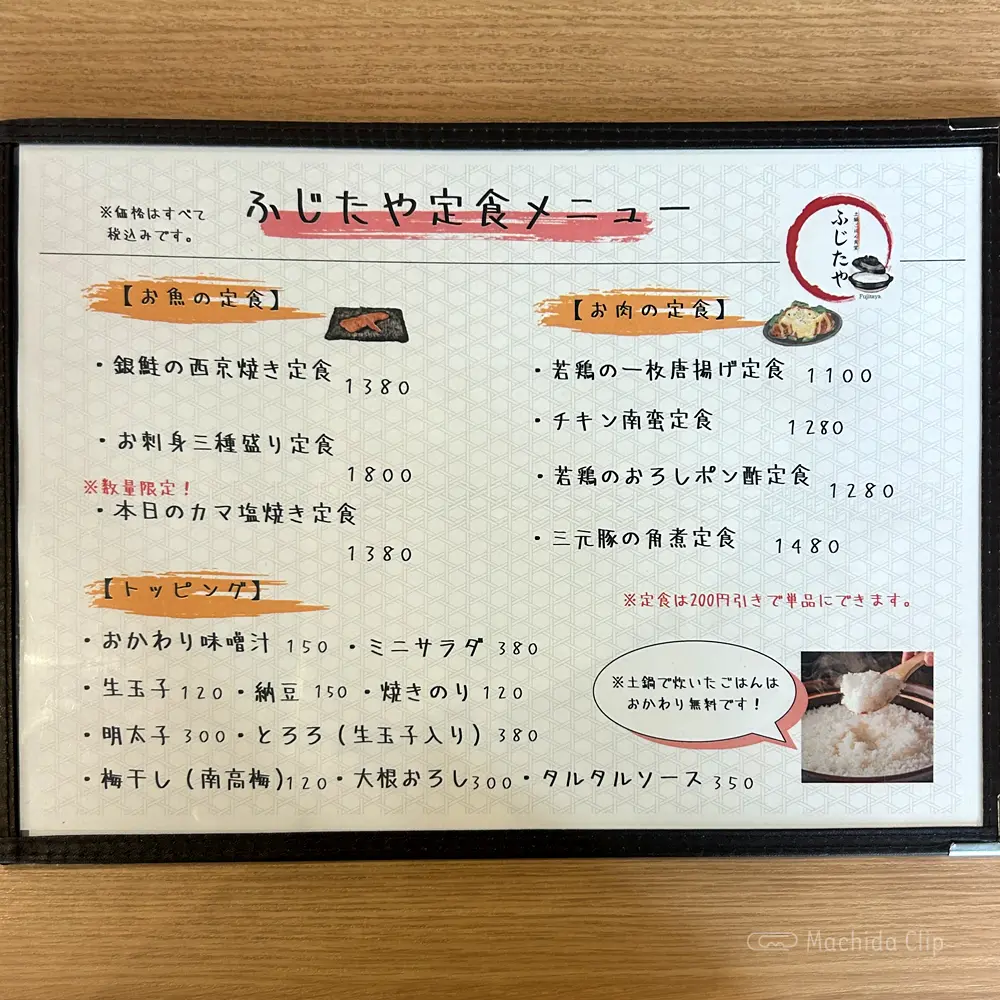 ※価格はすべて
税込みです。
ふじたや定食メニュー
ふじたや
Fujitaya
【お魚の定食】
・銀鮭の西京焼き定食 1380
・お刺身三種盛り定食 1800
※数量限定！
・本日のカマ塩焼き定食 1380
【お肉の定食】
・若鶏の一枚唐揚げ定食 1100
・チキン南蛮定食 1280
・若鶏のおろしポン酢定食 1280
・三元豚の角煮定食 1480
※定食は200円引きで単品にできます。
【トッピング】
・おかわり味噌汁 150 ・ミニサラダ 380
・生玉子 120 ・納豆 150 ・焼きのり 120
・明太子 300 ・とろろ（生玉子入り） 380
・梅干し（南高梅）120 ・大根おろし 300 ・タルタルソース 350
※土鍋で炊いたごはんは
おかわり無料です！
Machida Clip